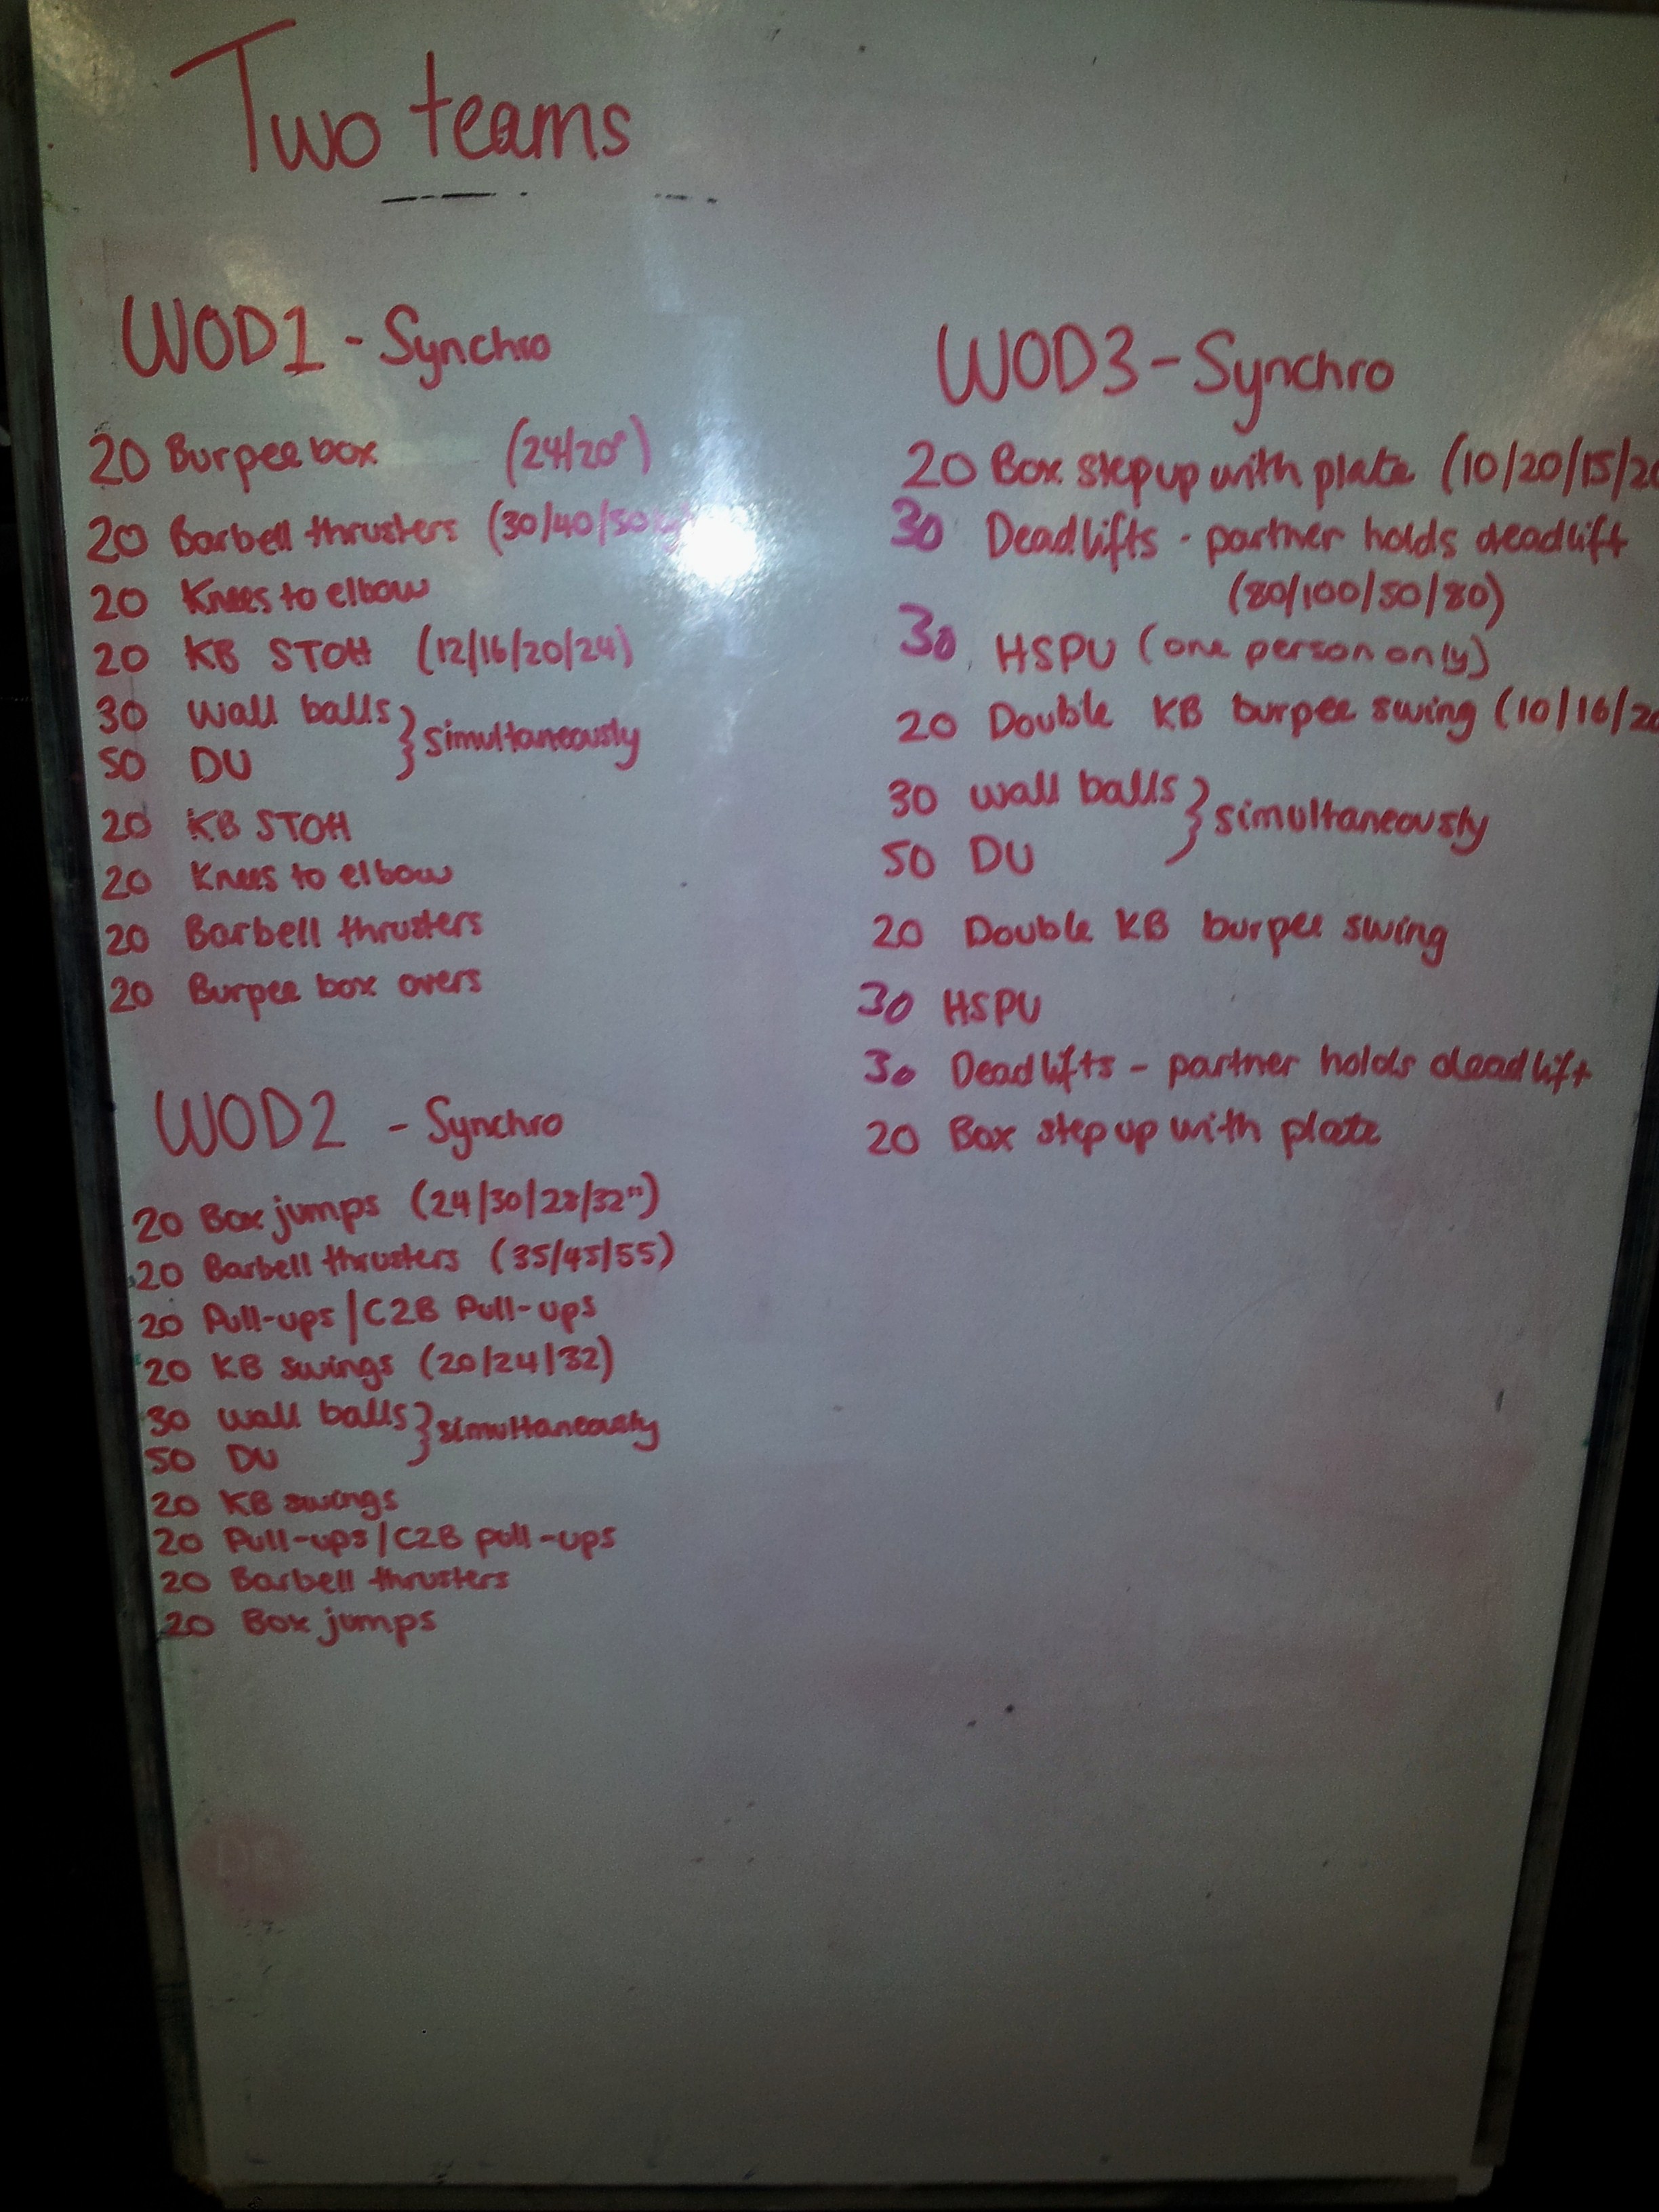 Two teams
WOD1 - Synchro
20 Burpee box (24/20")
20 Barbell thrusters (30/40/50
20 Knees to elbow
20 KB STOH (12/16/20/24)
30 wall balls
} simultaneously
50 DU
20 KB STOH
20 Knees to elbow
20 Barbell thrusters
20 Burpee box overs
WOD2 - Synchro
20 Box jumps (24/30/28/32")
20 Barbell thrusters (35/45/55)
20 Pull-ups/C2B Pull-ups
20 KB swings (20/24/32)
30 wall balls
} simultaneously
50 DU
20 KB swings
20 Pull-ups/C2B pull-ups
20 Barbell thrusters
20 Box jumps
WOD3 - Synchro
20 Box step up with plate (10/20/15/20
30 Deadlifts - partner holds deadlift
(80/100/50/80)
30 HSPU (one person only)
20 Double KB burpee swing (10/16/20
30 wall balls
} simultaneously
50 DU
20 Double KB burpee swing
30 HSPU
30 Deadlifts - partner holds deadlift
20 Box step up with plate